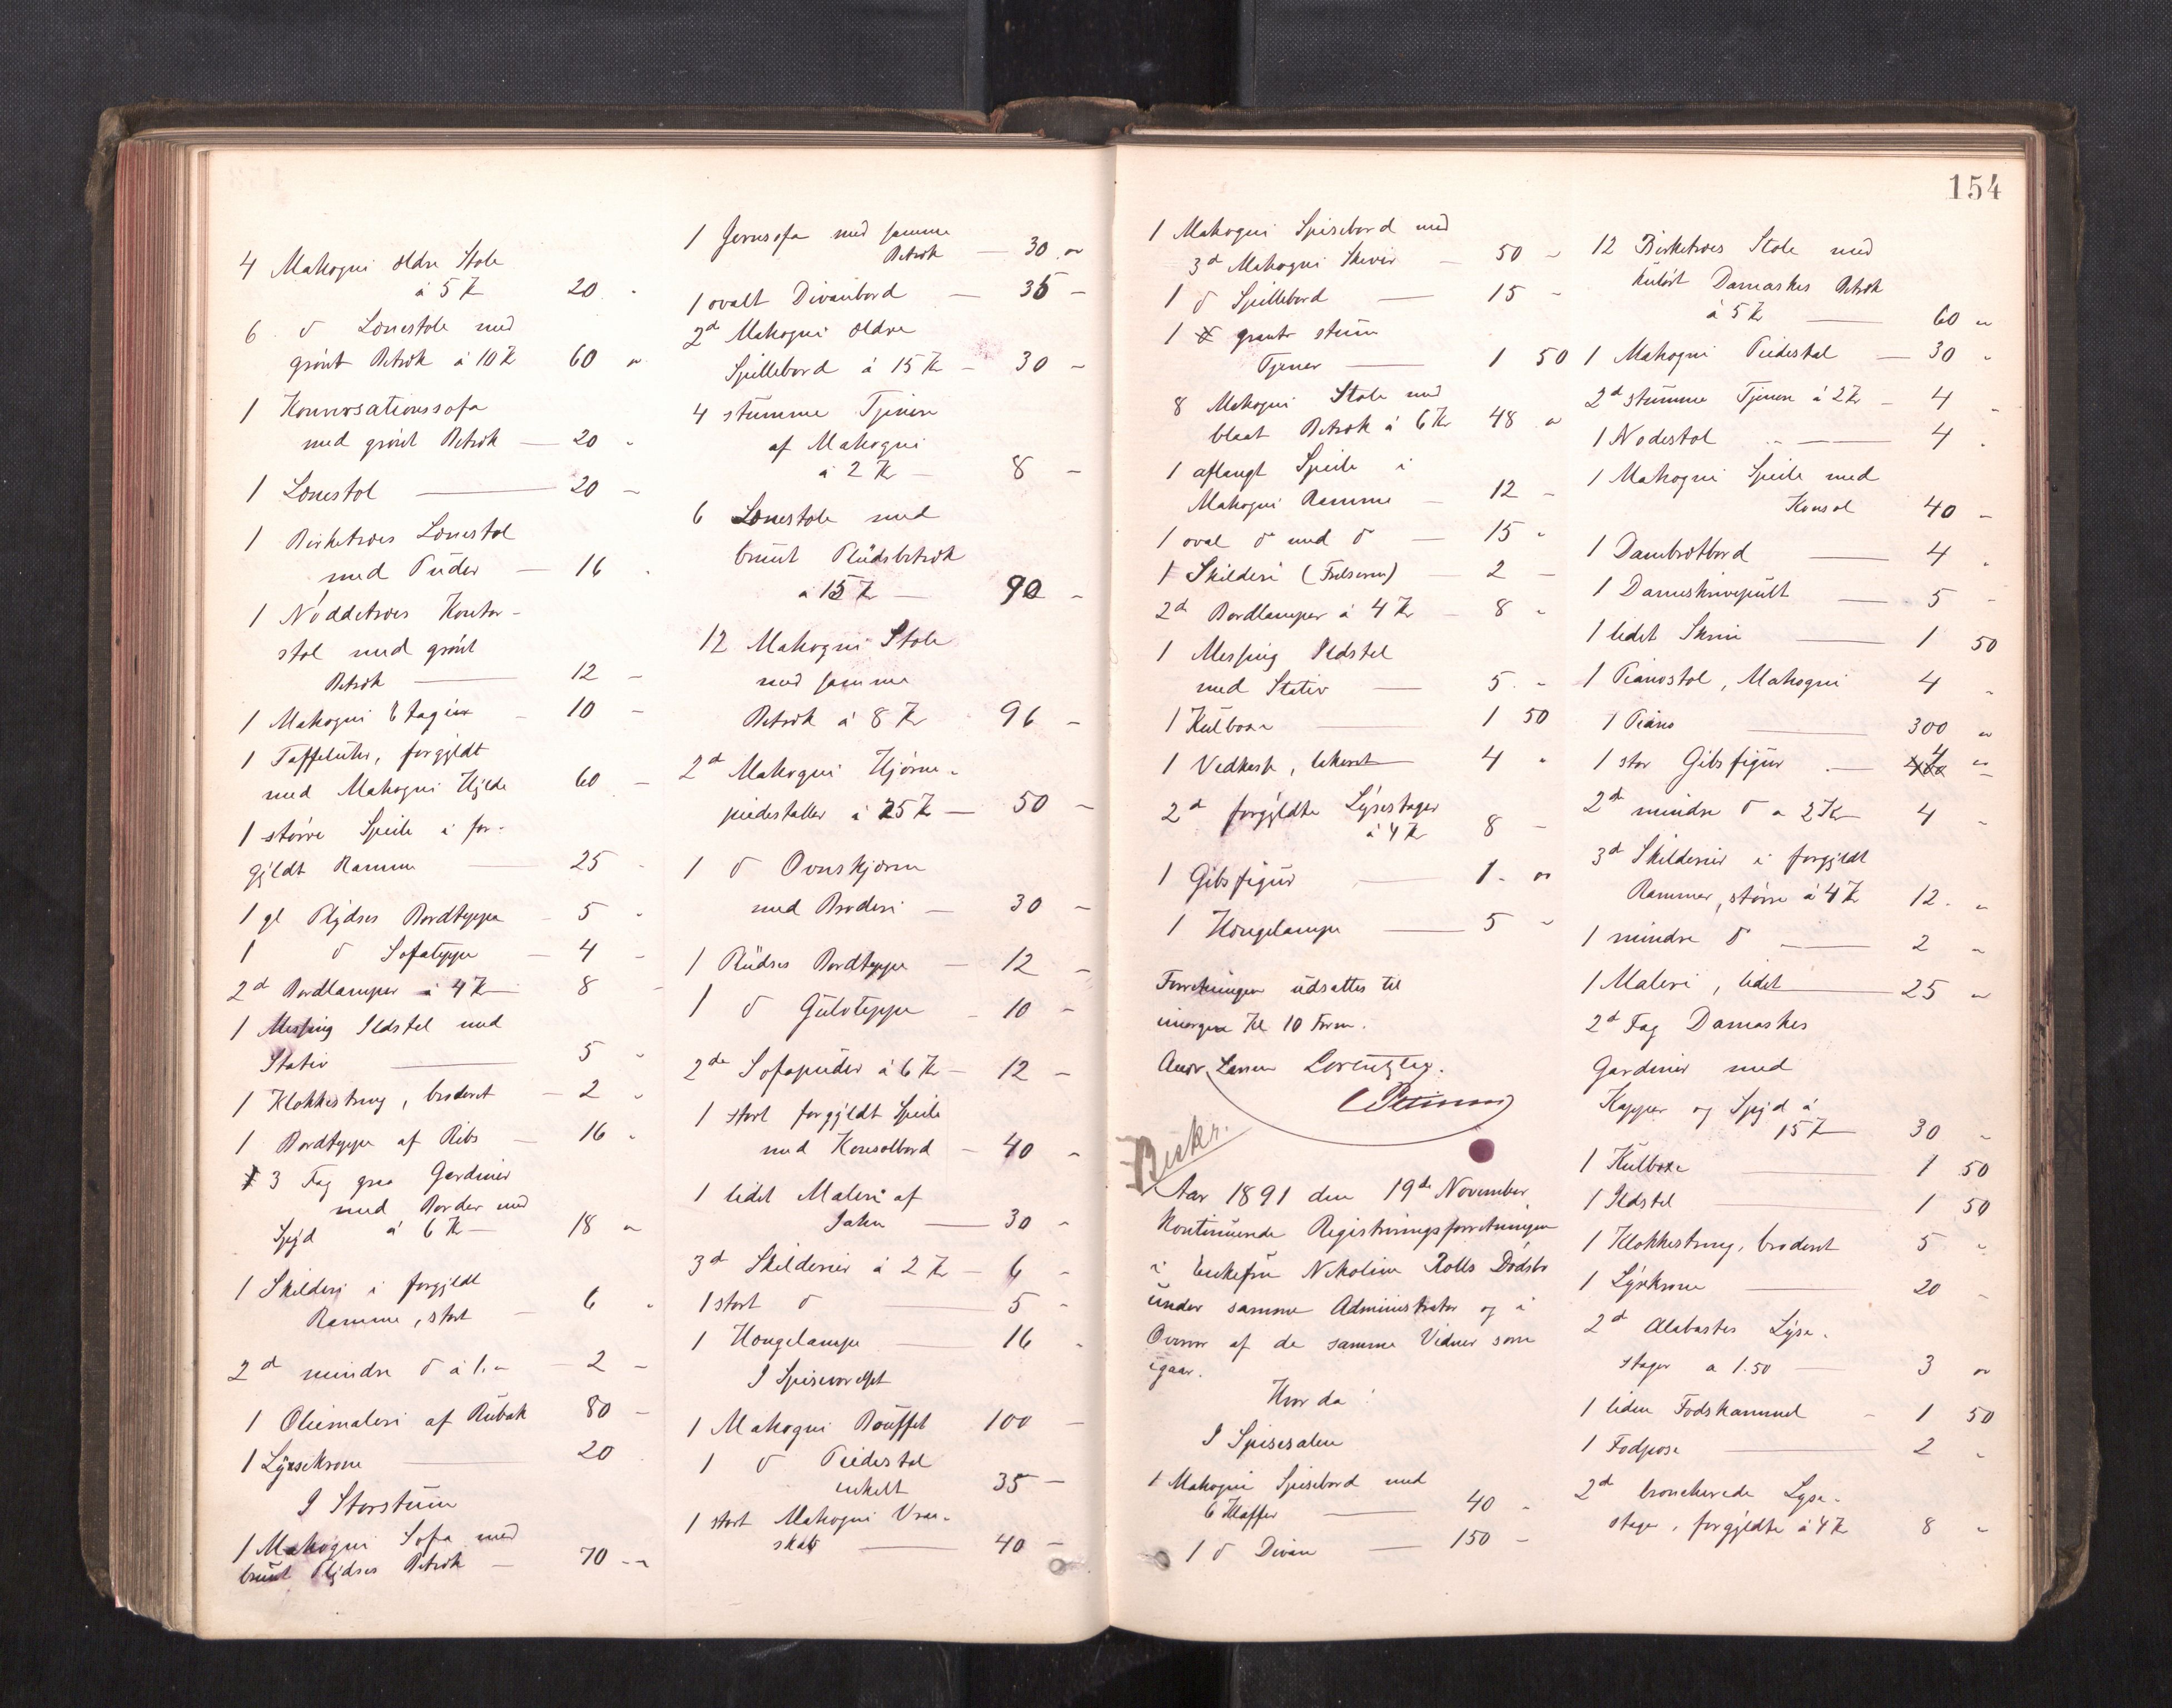 4 Mahogni ældre Stole
á 5 Kr 20 -
6 do Lænestole med
grønt Betræk á 10 Kr 60 "
1 Konversationssofa
med grønt Betræk — 20 -
1 Lænestol — 20 -
1 Birketræes Lænestol
med Puder — 16 -
1 Nøddetræes Kontor-
stol med grønt
Betræk — 12 -
1 Mahogni Etagère - 10 -
1 Taffeluhr, forgyldt
med Mahogni Hylde 60 -
1 større Speile i for-
gyldt Ramme — 25 -
1 gl Plydses Bordteppe - 5 -
1 do Sofateppe - 4 -
2de Bordlamper á 4 Kr - 8 -
1 Messing Ildstel med
Stativ — 5 -
1 Klokkestreng, broderet - 2 -
1 Bordteppe af Ribs — 16 -
3 Fag graa Gardiner
med Border med
Spyd á 6 Kr — 18 "
1 Skilderi i forgyldt
Ramme, stort - 6 "
2de mindre do á 1." - 2 -
1 Oliemaleri af Rubak 80 -
1 Lysekrone — 20
I Storstuen
1 Mahogni Sofa med
brunt Plydses Betræk — 70 --
1 Jernsofa med samme
Betræk — 30 "
1 ovalt Divanbord — 35 -
2de Mahogni ældre
Spillebord á 15 Kr - 30 -
4 stumme Tjenere
af Mahogni
á 2 Kr — 8 -
6 Lænestole med
brunt Plüdsbetræk
á 15 Kr — 90 -
12 Mahogni Stole
med samme
Betræk á 8 Kr 96 -
2de Mahogni Hjørne-
piedestaller á 25 Kr — 50 -
1 do Ovnskjærm
med Broderi — 30 -
1 Plüdses Bordteppe — 12 -
1 do Gulvteppe - 10 -
2de Sofapuder á 6 Kr — 12 -
1 stort forgyldt Speile
med Konsolbord - 40 -
1 lidet Maleri af
Jahn — 30 -
3de Skilderier á 2 Kr - 6 -
1 stort do — 5 -
1 Hængelampe — 16 -
I Spiseværelset
1 Mahogni Bouffet 100 —
1 do Piedestal
enkelt 35 —
1 stort Mahogni
skab — 40 —
154
1 Mahogni Spisebord med
3de Mahogni Skiver - 50 -
1 do Spillebord — 15 -
1 stum
Tjener — 1 50
8 Mahogni Stole med
blaat Betræk á 6 Kr 48 "
1 aflangt Speile i
Mahogni Ramme - 12 -
1 oval do med do — 15 -
1 Skilderi (Frelseren) - 2 -
2de Bordlamper á 4 Kr - 8 "
1 Messing Ildstel
med Stativ — 5. -
1 Kulboxe — 1 50
1 Vedkasse, lakeret 4 "
2de forgyldte Lysestager
á 4 Kr 8 -
1 Gibsfigur — 1. "
1 Hængelampe — 5 -
Forretningen udsattes til
imorgen Kl 10 Form.
Andr. Larsen Lorentzen.
Beskr.
Aar 1891 den 19de November
kontinuerede Registreringsforretningen
i Enkefru Nikoline Rolls Dødsbo
under samme Administrator og i
Overvær af de samme Vidner som
igaar.
Hvor da:
I Spisesalen
1 Mahogni Spisebord med
6 Klaffer — 40 -
1 do Divan — 150 -
12 Birketræes Stole med
kulørt Damaskes Betræk
á 5 Kr — 60 "
1 Mahogni Piedestal — 30 -
2de stumme Tjenere á 2 Kr - 4 -
1 Nodestol — 4 -
1 Mahogni Speile med
Konsol 40 -
1 Dambrætbord — 4 "
1 Dameskrivepult — 5 -
1 lidet Skrin — 1 50
1 Pianostol, Mahogni 4 -
1 Piano — 300 "
1 stor Gibsfigur — 4 "
2de mindre do a 2 Kr 4 -
3de Skilderier i forgyldt
Rammer, større á 4 Kr 12. "
1 mindre do — 2 "
1 Maleri, lidet — 25 "
2de Fag Damaskes
Gardiner med
Kapper og Spyd á
15 Kr 30 -
1 Kulboxe — 1 50
1 Ildstel — 1 50
1 Klokkestreng, broderet 5 "
1 Lysekrone — 20 -
2de Alabastes Lyse-
stager a 1.50 — 3 "
1 liden Fodskammel - 1 50
1 Fodpose — 2 "
2de broncherede Lyse-
stager, forgyldte á 4 Kr 8 "